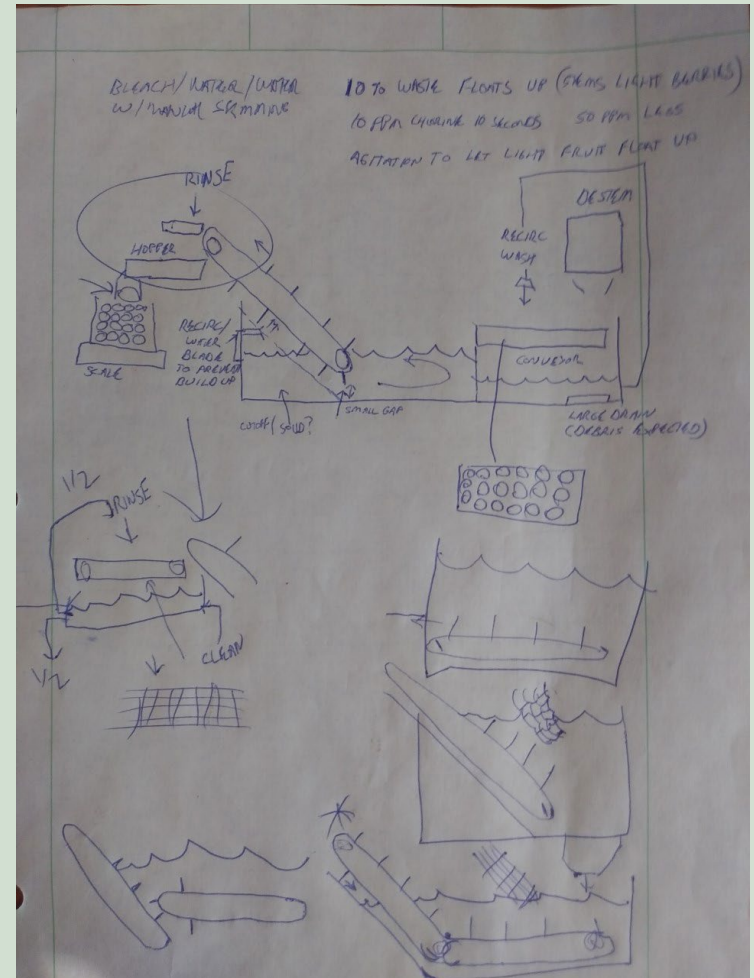 BLEACH/WATER/WATER
W/MANUAL SKIMMING
10% WASTE FLOATS UP (STEMS LIGHT BERRIES)
10 PPM CHLORINE 10 SECONDS 50 PPM LESS
AGITATION TO LET LIGHT FRUIT FLOAT UP
RINSE
HOPPER
SCALE
RECIRC/
WEIR
BLADE
TO PREVENT
BUILD UP
CUTOFF/SOLID?
SMALL GAP
DESTEM
RECIRC
WASH
CONVEYOR
LARGE DRAIN
(DEBRIS EXPECTED)
1/2
RINSE
CLEAN
1/2